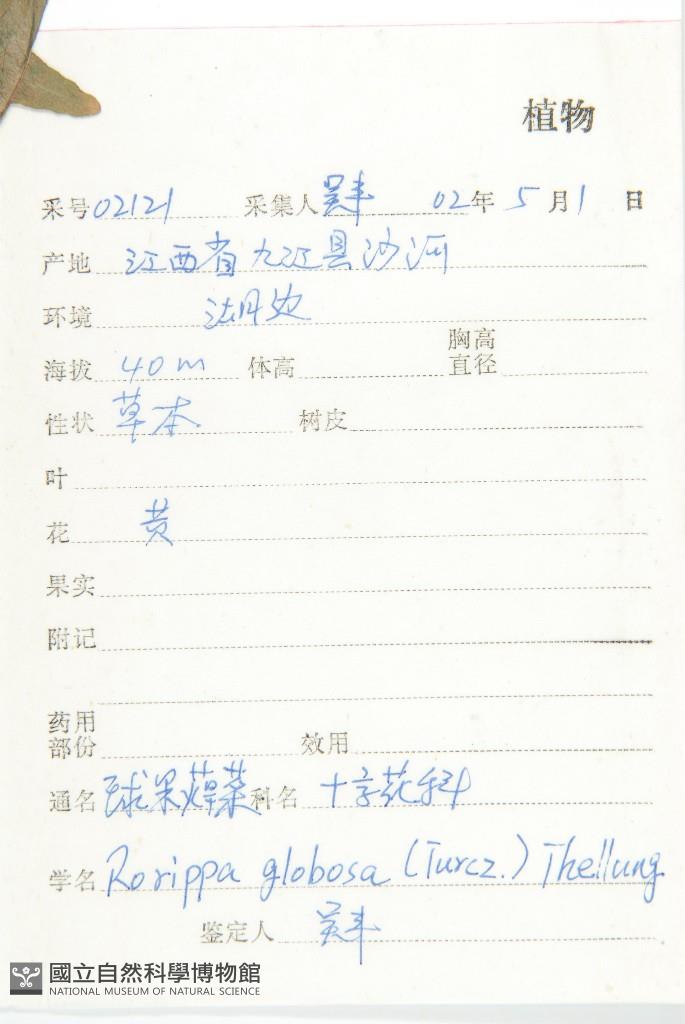 植物
采号 02121 采集人 吴丰 02年 5月 1日
产地 江西省九江县沙河
环境 湖边
海拔 40m 体高 胸高直径
性状 草本 树皮
叶
花 黄
果实
附记
药用部份 效用
通名 球果蔊菜 科名 十字花科
学名 Rorippa globosa (Turcz.) Thellung
鉴定人 吴丰
國立自然科學博物館
NATIONAL MUSEUM OF NATURAL SCIENCE